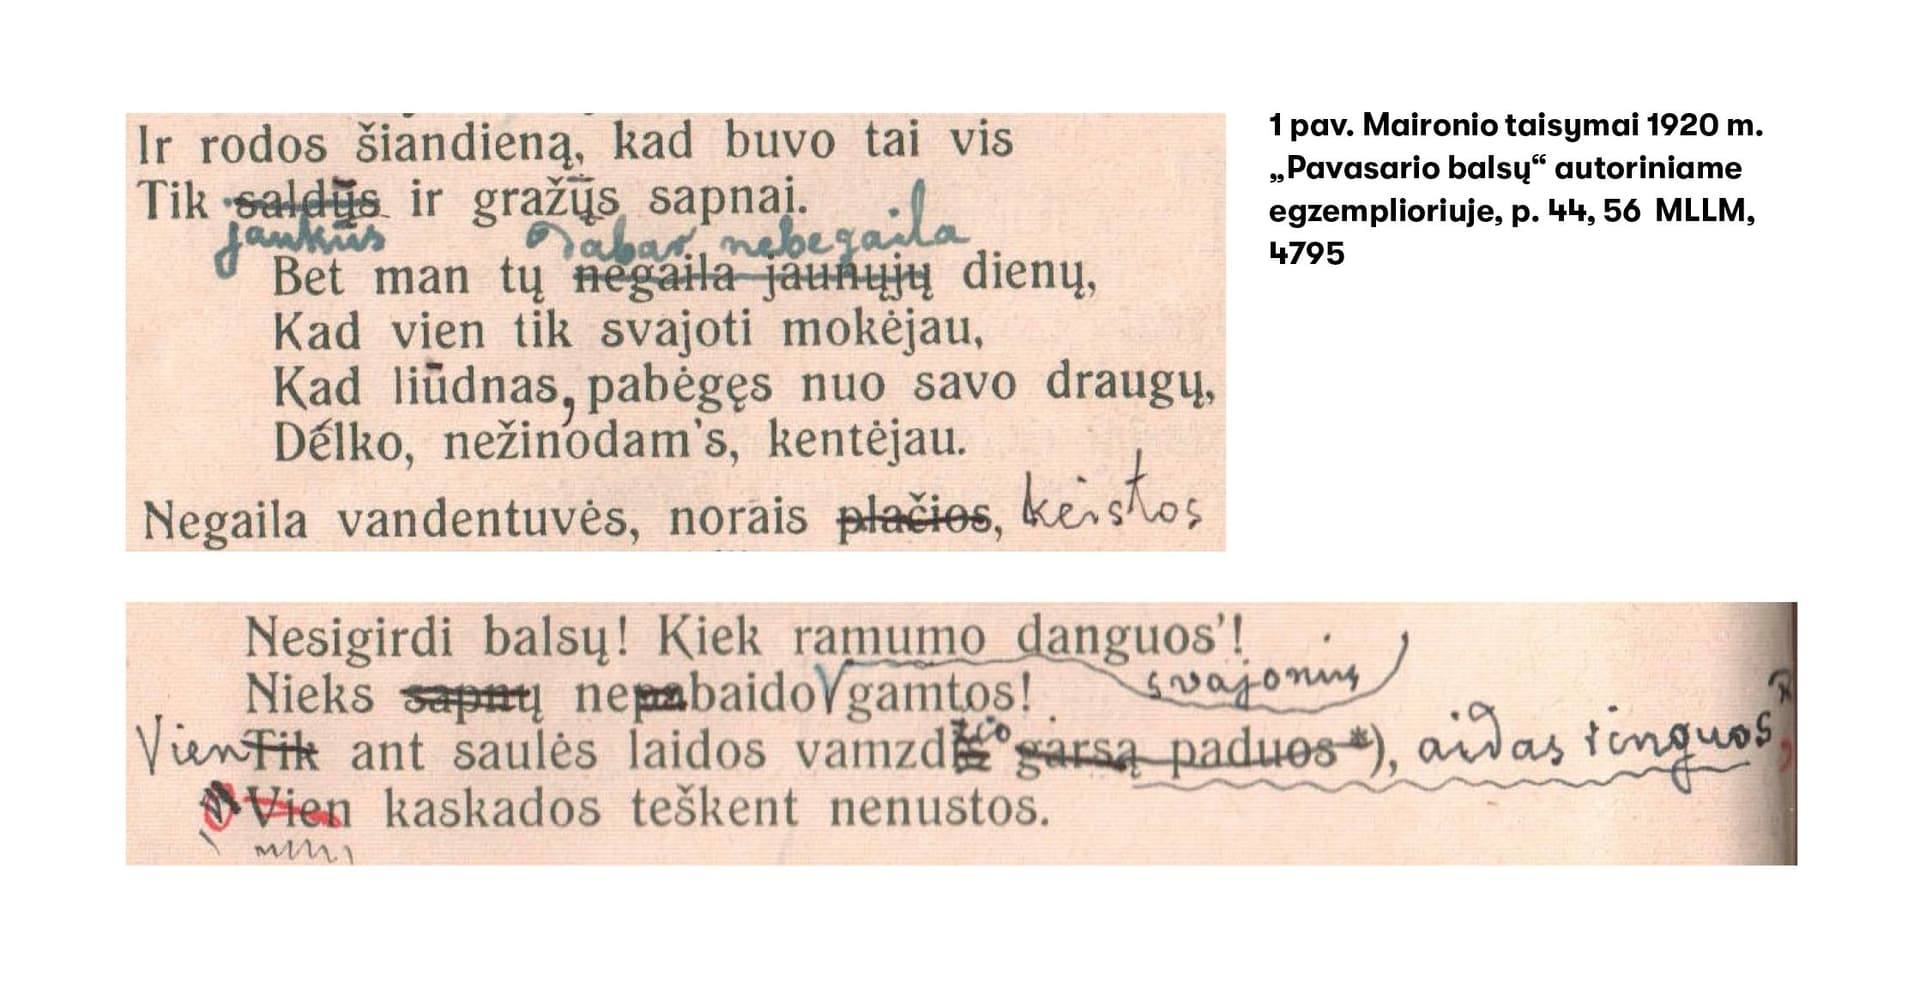 Ir rodos šiandieną, kad buvo tai vis
Tik saldųs ir gražųs sapnai.
jaukūs Dabar nebegaila
Bet man tų negaila jaunųjų dienų,
Kad vien tik svajoti mokėjau,
Kad liūdnas, pabėgęs nuo savo draugų,
Dėlko, nežinodam's, kentėjau.
Negaila vandentuvės, norais plačios, keistos
1 pav. Maironio taisymai 1920 m.
„Pavasario balsų“ autoriniame
egzemplioriuje, p. 44, 56 MLLM,
4795
Nesigirdi balsų! Kiek ramumo danguos'!
svajonių
Nieks sapnų nepabaido gamtos!
Vien Tik ant saulės laidos vamzdis žio garsą paduos*), aidas tinguos
Vien kaskados teškent nenustos.